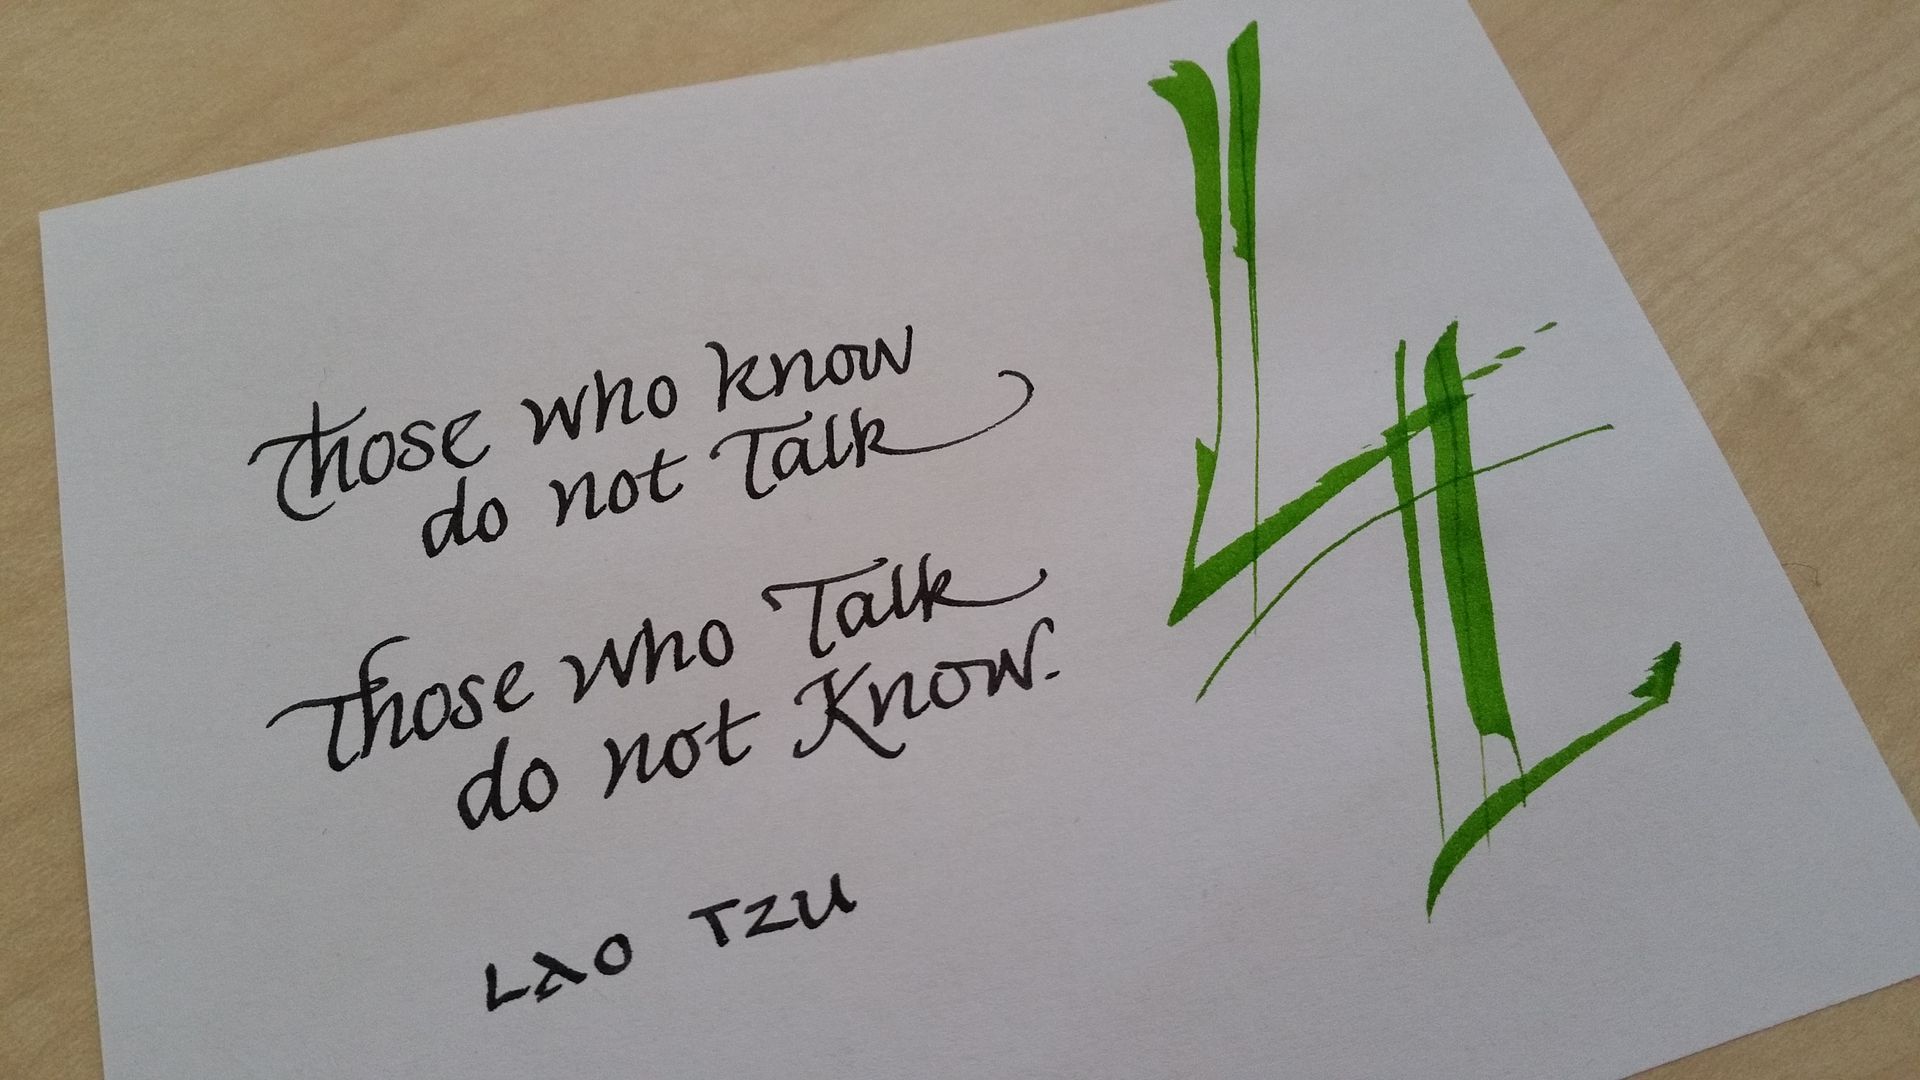 Those who know
do not Talk
Those who Talk
do not Know.
LAO TZU